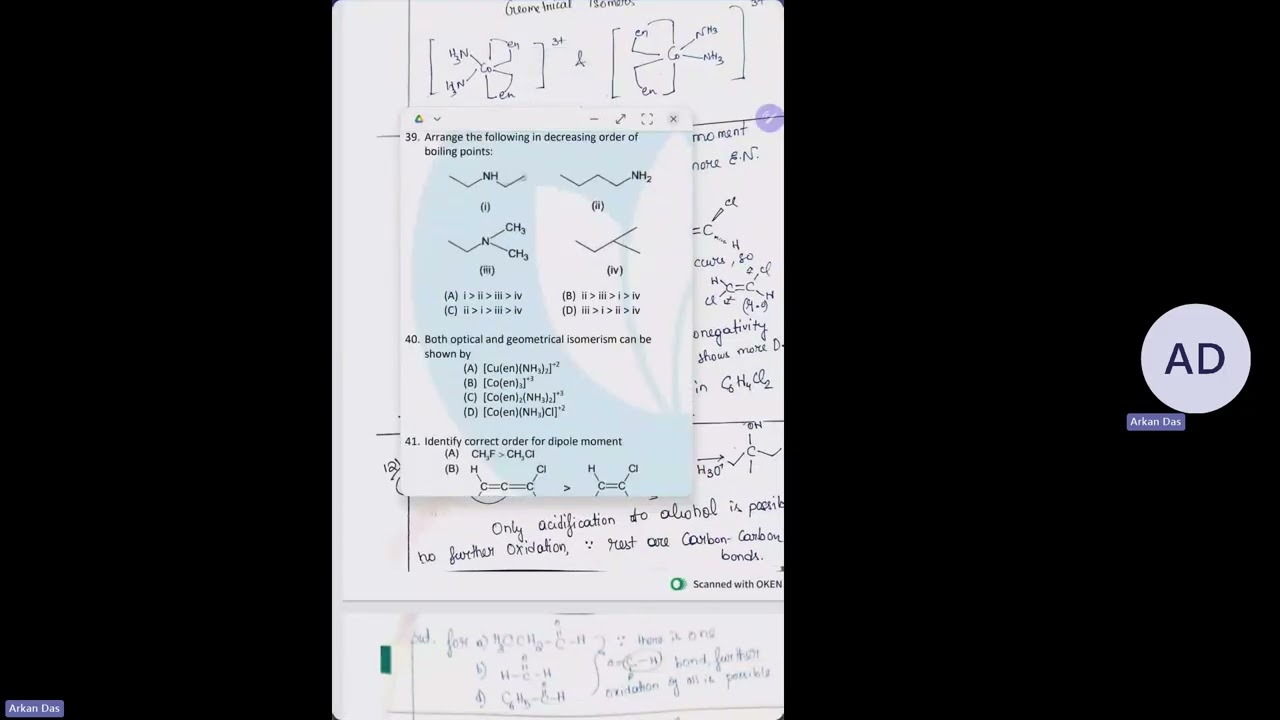 Geometrical Isomers
3+
3+
H₃N
en
&
en
NH₃
Co
Co
NH₃
H₃N
en
en
39. Arrange the following in decreasing order of
boiling points:
NH
NH₂
(i)
(ii)
CH₃
N
CH₃
(iii)
(iv)
(A) i > ii > iii > iv
(B) ii > iii > i > iv
(C) ii > i > iii > iv
(D) iii > i > ii > iv
40. Both optical and geometrical isomerism can be
shown by
(A) [Cu(en)(NH₃)₂]⁺²
(B) [Co(en)₃]⁺³
(C) [Co(en)₂(NH₃)₂]⁺³
(D) [Co(en)(NH₃)Cl]⁺²
41. Identify correct order for dipole moment
(A) CH₃F > CH₃Cl
(B) H Cl H Cl
C=C=C > C=C
moment
more E.N.
Cl
=C
H
occurs, so
H Cl
C=C
Cl H
onegativity
shows more D.
in C₆H₄Cl₂
OH
12)
H₃O⁺
C
Only acidification to alcohol is possib
no further oxidation, ∵ rest are Carbon-Carbon
bonds.
Scanned with OKEN
but. for a) H₃CCH₂-C-H ∵ there is one
O
b) H-C-H
(C-H) bond, further
d) C₆H₅-C-H
oxidation of all is possible
AD
Arkan Das
Arkan Das